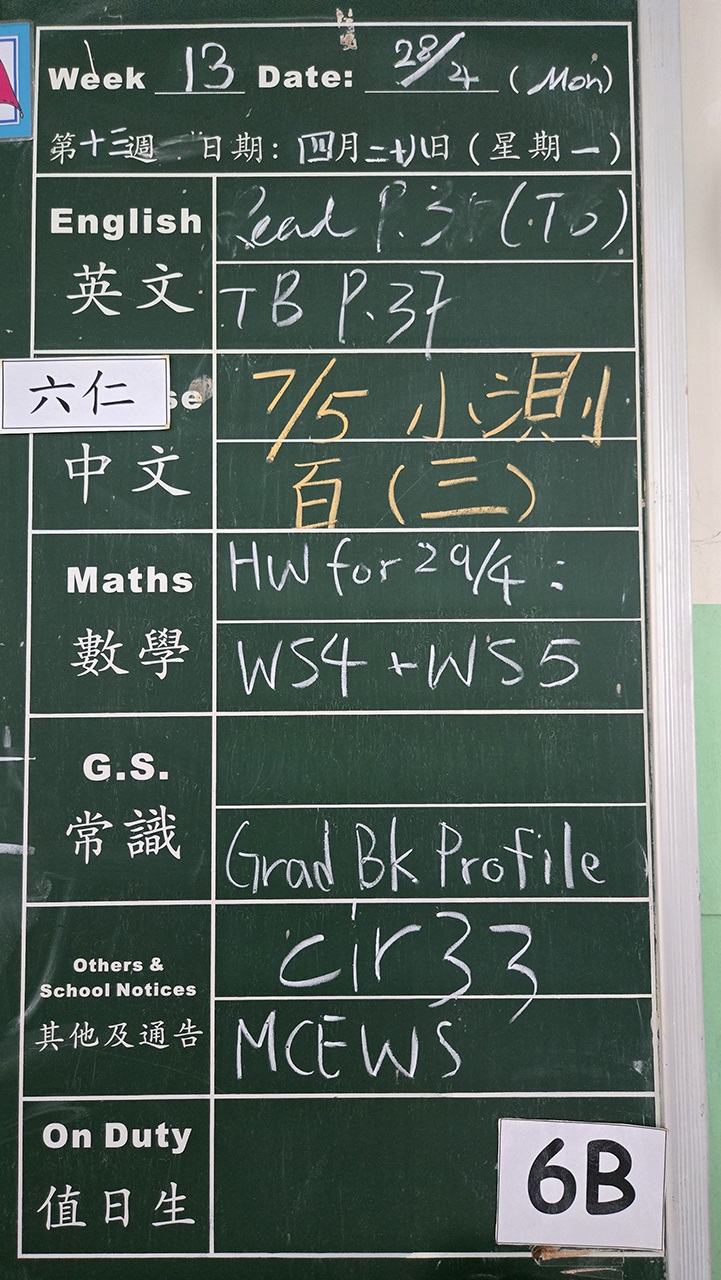 Week 13 Date: 28/4 (Mon)
第十三週 日期: 四月二十八日 (星期一)
English Read P.3 (To)
英文 TB P.37
六仁
se 7/5 小測
中文 百(三)
Maths HW for 29/4 :
數學 WS4 + WS5
G.S.
常識 Grad Bk Profile
Others & cir 33
School Notices
其他及通告 MCE WS
On Duty
值日生
6B